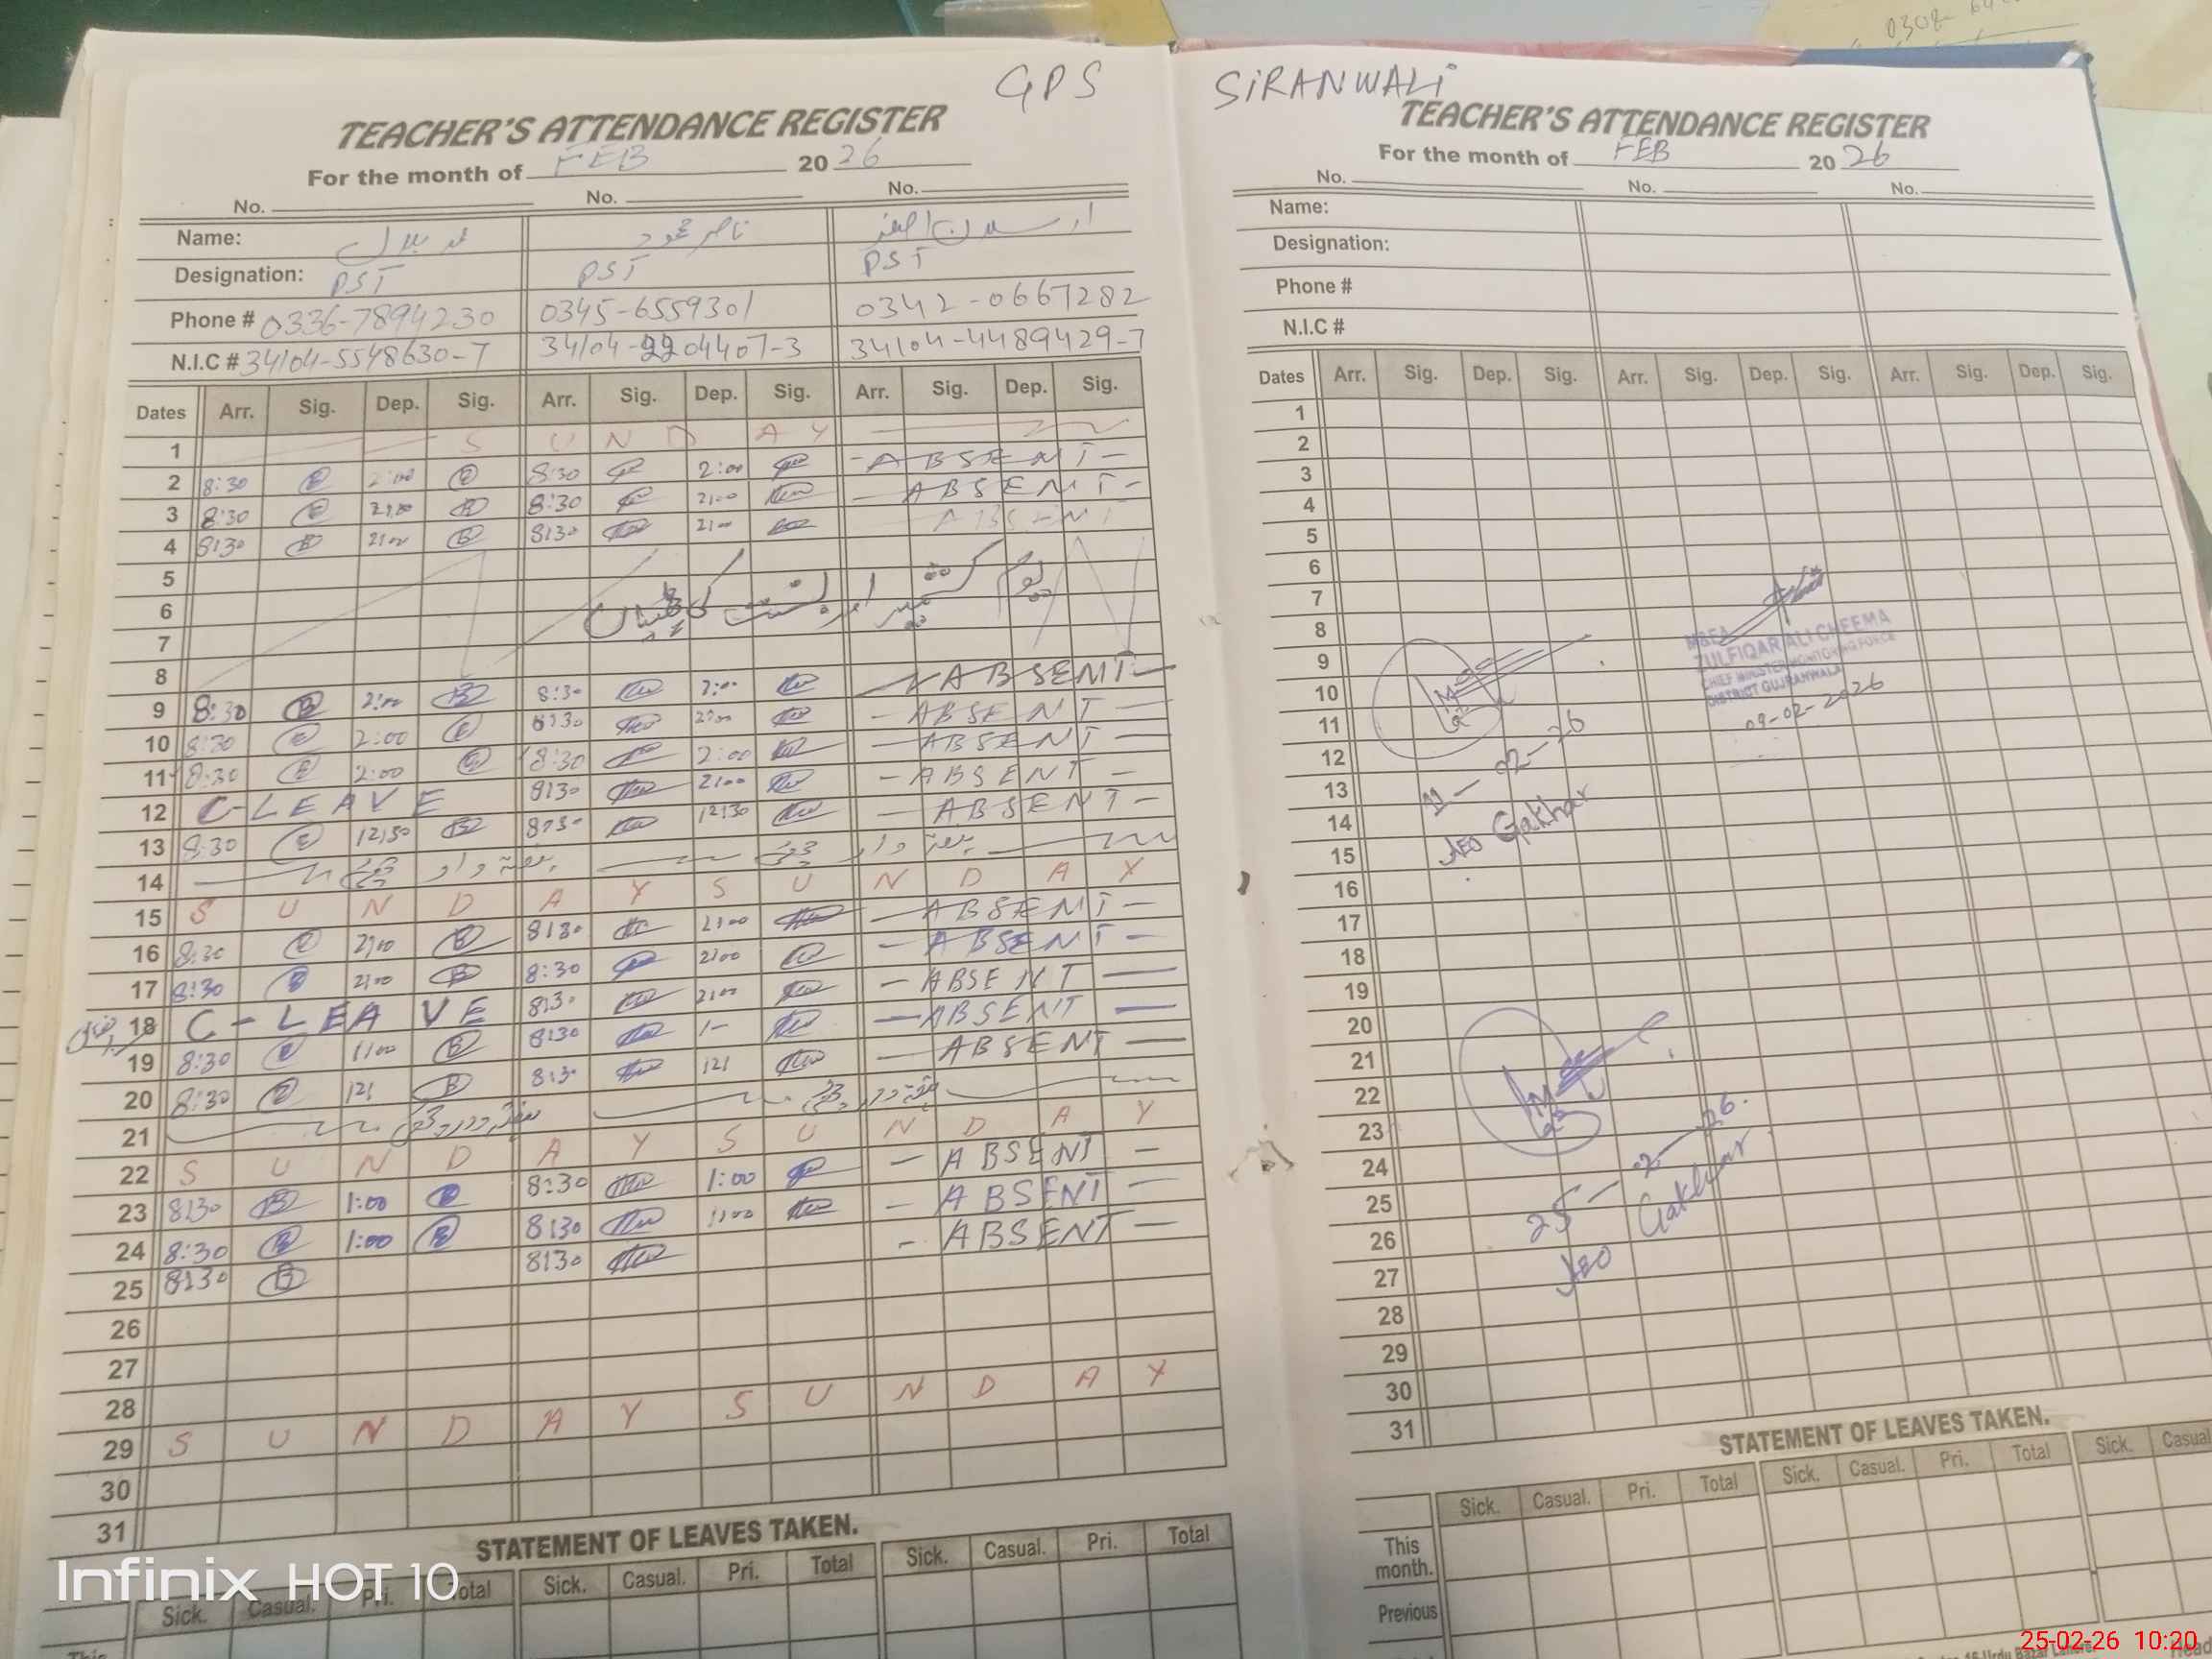 GPS SIRANWALI
TEACHER'S ATTENDANCE REGISTER
For the month of FEB 2026
No. No. No.
Name: ناصر محمود
Designation: PST PST PST
Phone # 0336-7894230 0345-6559301 0342-0667282
N.I.C # 34104-5548630-7 34104-2204407-3 34104-4489429-7
Dates Arr. Sig. Dep. Sig. Arr. Sig. Dep. Sig. Arr. Sig. Dep. Sig.
1 SUNDAY
2 8:30 2:00 8:30 2:00 - ABSENT -
3 8:30 2:00 8:30 2:00 - ABSENT -
4 8:30 2:00 8:30 2:00 ABSENT
5
6 یوم کشمیر اور بسنت کی چھٹیاں
7
8
9 8:30 2:00 8:30 2:00 - ABSENT -
10 8:30 2:00 8:30 2:00 - ABSENT -
11 8:30 2:00 8:30 2:00 - ABSENT -
12 C-LEAVE 8:30 2:00 - ABSENT -
13 8:30 12:30 8:30 12:30 - ABSENT -
14 ہفتہ وار چھٹی ہفتہ وار چھٹی
15 SUNDAY SUNDAY
16 8:30 2:00 8:30 2:00 - ABSENT -
17 8:30 2:00 8:30 2:00 - ABSENT -
18 C-LEAVE 8:30 2:00 - ABSENT -
19 8:30 1:00 8:30 1- - ABSENT -
20 8:30 12: 8:30 12: - ABSENT -
21 ہفتہ وار چھٹی ہفتہ وار چھٹی
22 SUNDAY SUNDAY
23 8:30 1:00 8:30 1:00 - ABSENT -
24 8:30 1:00 8:30 1:00 - ABSENT -
25 8:30 8:30 - ABSENT -
26
27
28
29 SUNDAY SUNDAY
30
31
STATEMENT OF LEAVES TAKEN.
Sick. Casual. Pri. Total Sick. Casual. Pri. Total Sick. Casual. Pri. Total
Infinix HOT 10
TEACHER'S ATTENDANCE REGISTER
For the month of FEB 2026
No. No. No.
Name:
Designation:
Phone #
N.I.C #
Dates Arr. Sig. Dep. Sig. Arr. Sig. Dep. Sig. Arr. Sig. Dep. Sig.
1
2
3
4
5
6
7
8
9
10
11
12
13
14
15
16
17
18
19
20
21
22
23
24
25
26
27
28
29
30
31
ZULFIQAR ALI CHEEMA
CHIEF MINISTER MONITORING FORCE
DISTRICT GUJRANWALA
09-02-2026
11-02-26
AEO Gakhar
25-02-26.
AEO Gakhar
STATEMENT OF LEAVES TAKEN.
Sick. Casual. Pri. Total Sick. Casual. Pri. Total Sick. Casual
This month.
Previous
25-02-26 10:20